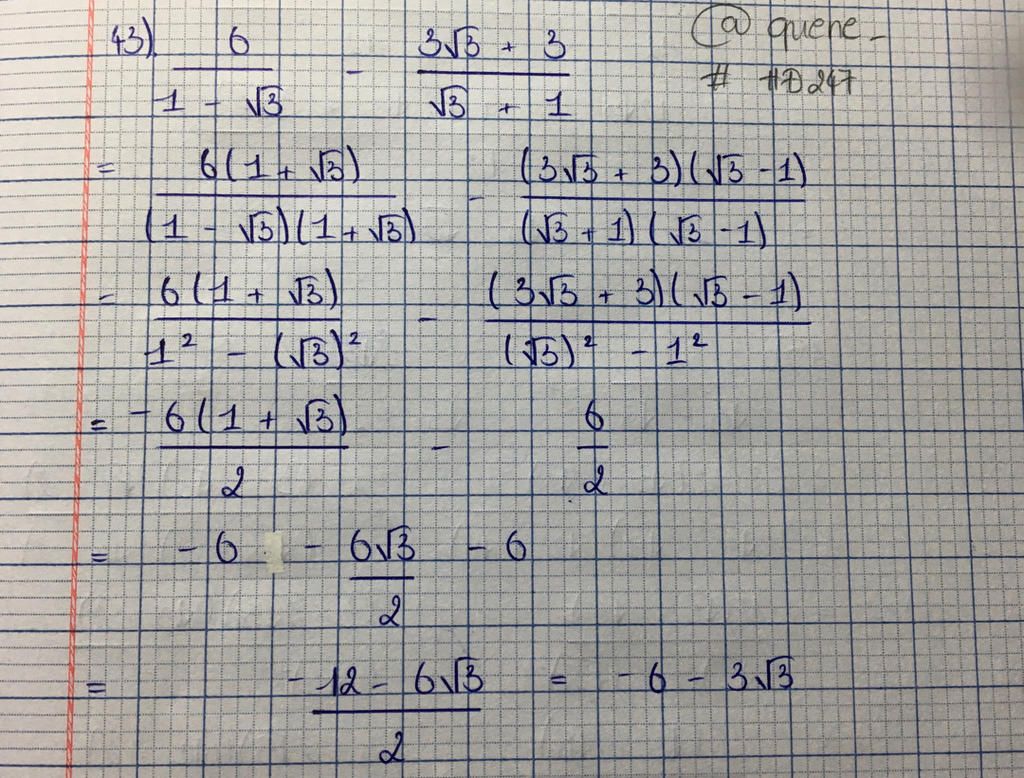 43) 6/(1 - √3) - (3√3 + 3)/(√3 + 1)
@ quene_
# HD247
= 6(1 + √3)/((1 - √3)(1 + √3)) - (3√3 + 3)(√3 - 1)/((√3 + 1)(√3 - 1))
= 6(1 + √3)/(1² - (√3)²) - (3√3 + 3)(√3 - 1)/((√3)² - 1²)
= -6(1 + √3)/2 - 6/2
= (-6 - 6√3 - 6)/2
= (-12 - 6√3)/2 = -6 - 3√3